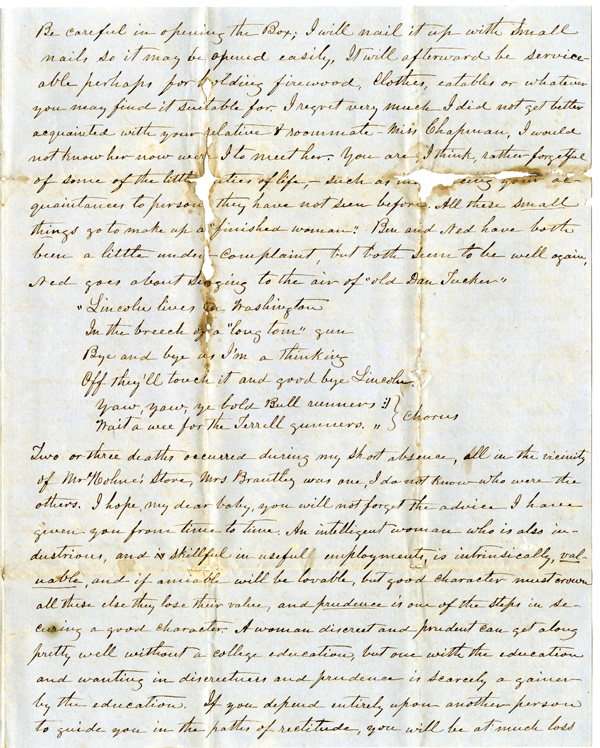 Be careful in opening the Box; I will nail it up with small
nails so it may be opened easily, It will afterward be service-
able perhaps for holding firewood, Clothes, eatables or whatever
you may find it suitable for. I regret very much I did not get better
acquainted with your relative & roommate - Miss Chapman, I would
not know her now were I to meet her. You are, I think, rather forgetful
of some of the little of life, - such as your ac
quaintances to persons they have not seen before. All these small
things go to make up a "finished woman". Ben and Ned have both
been a little under-complaint, but both seem to be well again,
Ned goes about singing to the air of "old Dan Tucker"
"Lincoln lives in Washington
In the breech of a "long tom" gun
Bye and bye as I'm a thinking
Off they'll touch it and good bye Lincoln.
Yaw, yaw, ye bold Bull runners :||
Wait a wee for the Terrell gunners. " } Chorus
Two or three deaths occurred during my short absence, all in the vicinity
of Mr Store, Mrs Brantley was one, I do not know who were the
others. I hope, my dear baby, you will not forget the advice I have
given you from time to time. An intelligent woman who is also in-
dustrious, and skillful in useful employments, is intrinsically, val-
uable, and if amiable will be lovable, but good character must crown
all these else they lose their value, and prudence is one of the steps in se-
curing a good character. A woman discreet and prudent can get along
pretty well without a college education, but one with the education
and wanting in discreetness and prudence is scarcely a gainer
by the education. If you depend entirely upon another person
to guide you in the paths of rectitude, you will be at much loss